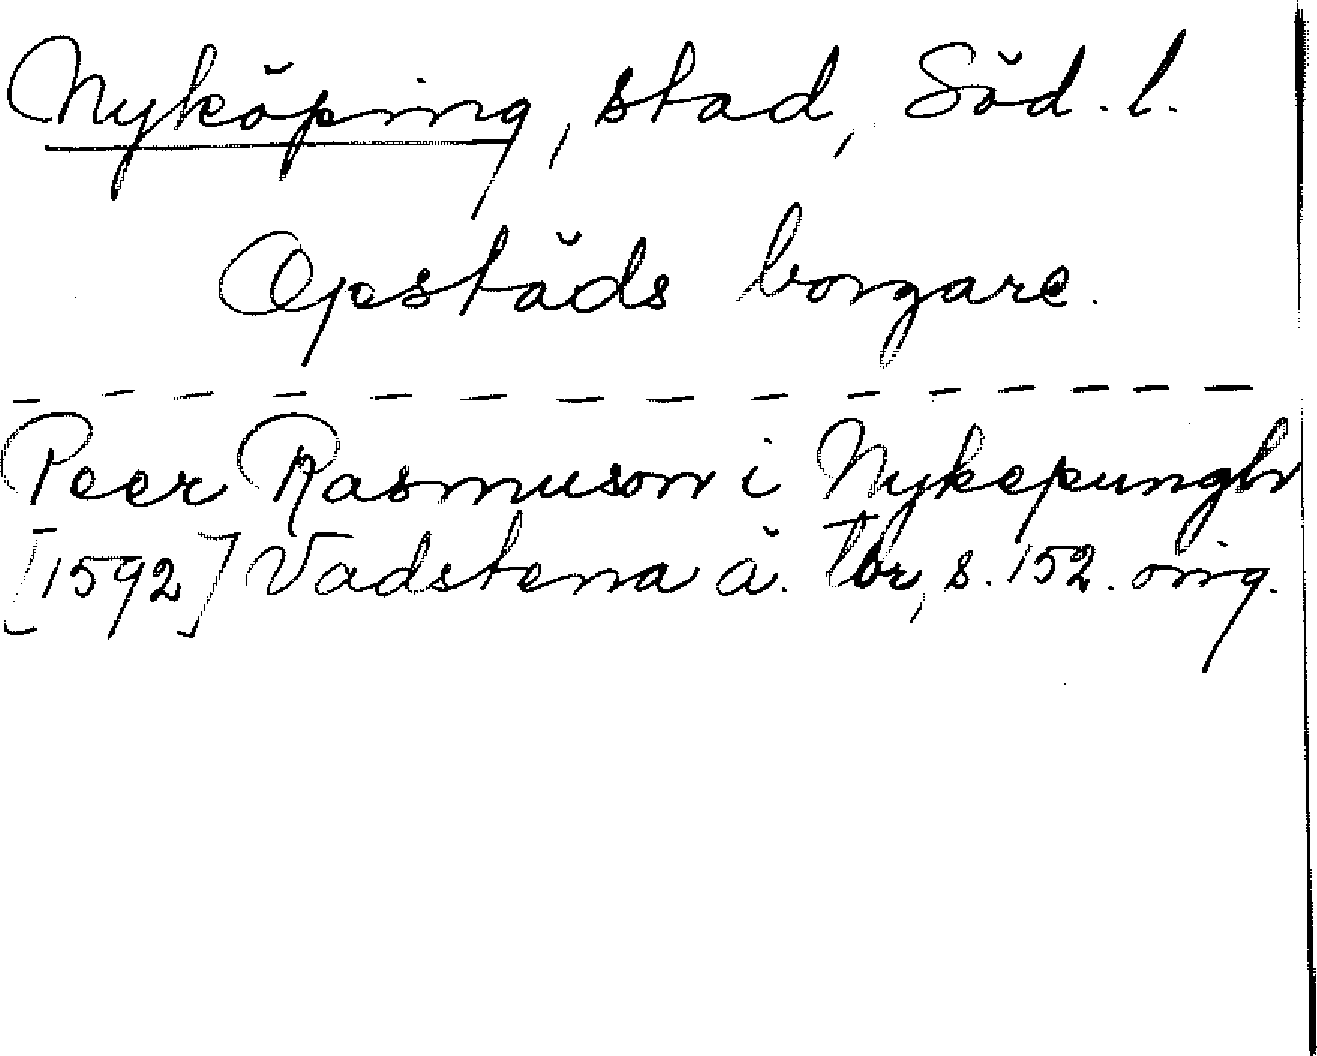 Nyköping, stad, Söd. l.
Opstäds borgare.
Peer Rasmuson i Nykepungh
[1592] Vadstena ä. Tbr, s. 152. orig.